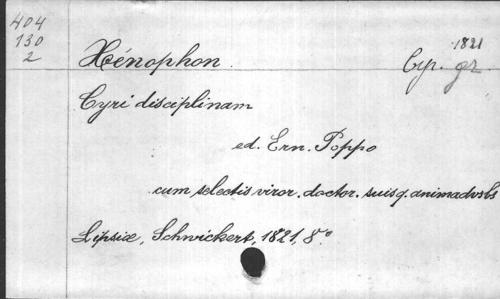 404
130
2
Xénophon. Cyp. gr.
1821
Cyri disciplinam
ed. Ern. Poppo
cum selectis viror. doctor. suisq. animadvsbs
Lipsiæ, Schwickert, 1821, 8°